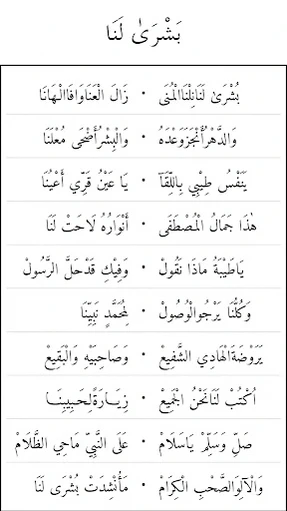 بَشْرَىٰ لَنَا
بُشْرَىٰ لَنَانِلْنَاالْمُنَى ۰ زَالَ الْعَنَاوَافَاالْهَانَا
وَالدَّهْرُأَنْجَزَوَعْدَهُ ۰ وَالْبِشْرُأَضْحَى مُعْلَنَا
يَنَفْسُ طِيْبِي بِاللِّقَآ ۰ يَا عَيْنُ قَرِّي أَعْيُنَا
هٰذَا جَمَالُ الْمُصْطَفَى ۰ أَنْوَارُهُ لَاحَتْ لَنَا
يَاطَيْبَةُ مَاذَا نَقُولْ ۰ وَفِيْكِ قَدْحَلَّ الرَّسُولْ
وَكُلُّنَا يَرْجُوالْوُصُولْ ۰ لِمُحَمَّدٍ نَبِيِّنَا
يَرَوْضَةَالْهَادِي الشَّفِيعْ ۰ وَصَاحِبَيْهِ وَالْبَقِيعْ
اُكْتُبْ لَنَانَحْنُ الْجَمِيعْ ۰ زِيَارَةًلِحَبِيبِنَا
صَلِّ وَسَلِّمْ يَاسَلَامْ ۰ عَلَى النَّبِيِّ مَاحِي الظَّلَامْ
وَالْآلِوَالصَّحْبِ الْكِرَامْ ۰ مَأُنْشِدَتْ بُشْرَى لَنَا